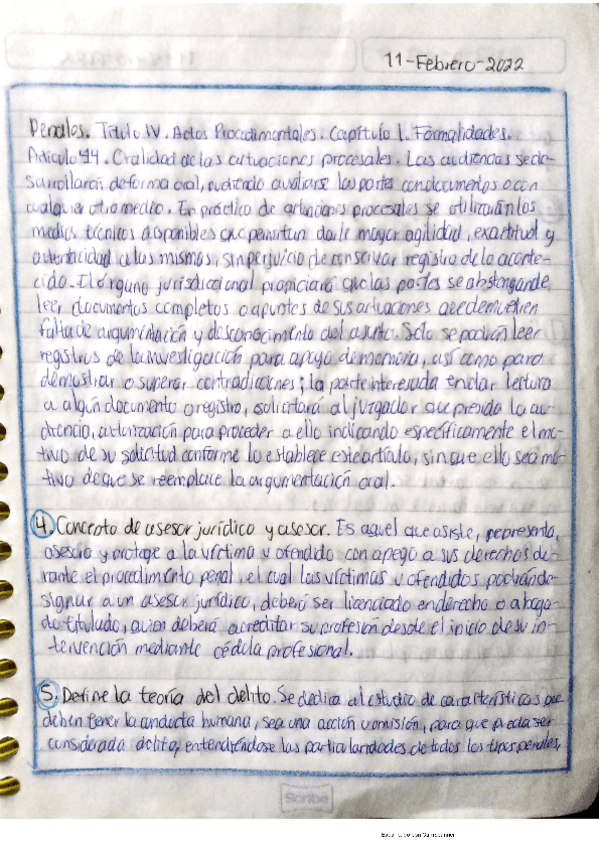 11-Febrero-2022
Penales. Título IV. Actos Procedimentales. Capítulo I. Formalidades.
Artículo 44. Oralidad de las actuaciones procesales. Las audiencias se de-
sarrollarán de forma oral, pudiendo auxiliarse las partes con documentos o con
cualquier otro medio. En práctica de actuaciones procesales se utilizarán los
medios técnicos disponibles que permitan darle mayor agilidad, exactitud y
autenticidad a las mismas, sin perjuicio de conservar registro de lo aconte-
cido. El órgano jurisdiccional propiciará que las partes se abstengan de
leer documentos completos o apuntes de sus actuaciones que demuestren
falta de argumentación y desconocimiento del asunto. Solo se podrán leer
registros de la investigación para apoyo de memoria, así como para
demostrar o superar contradicciones; la parte interesada en dar lectura
a algún documento o registro, solicitará al juzgador que presida la au-
diencia, autorización para proceder a ello indicando específicamente el mo-
tivo de su solicitud conforme lo establece este artículo, sin que ello sea mo-
tivo de que se reemplace la argumentación oral.
4. Concepto de asesor jurídico y asesor. Es aquel que asiste, representa,
asesora y protege a la víctima u ofendido con apego a sus derechos du-
rante el procedimiento penal, el cual las víctimas u ofendidos podrán de-
signar a un asesor jurídico, deberá ser licenciado en derecho o aboga-
do titulado, quien deberá acreditar su profesión desde el inicio de su in-
tervención mediante cédula profesional.
5. Define la teoría del delito. Se dedica al estudio de características que
deben tener la conducta humana, sea una acción u omisión, para que pueda ser
considerada delito, entendiéndose las particularidades de todos los tipos penales,
Scribe
Escaneado con CamScanner